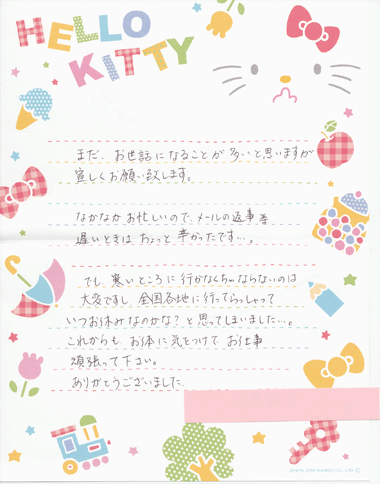 HELLO
KITTY
まだ、お世話になることが多いと思いますが
宜しくお願い致します。
なかなかお忙しいので、メールの返事等
遅いときはちょっと辛かったです…。
でも寒いところに行かなくちゃならないのは
大変ですし全国各地に行ってらっしゃって
いつお休みなのかな?と思ってしまいました…。
これからもお体に気をつけてお仕事
頑張って下さい。
ありがとうございました